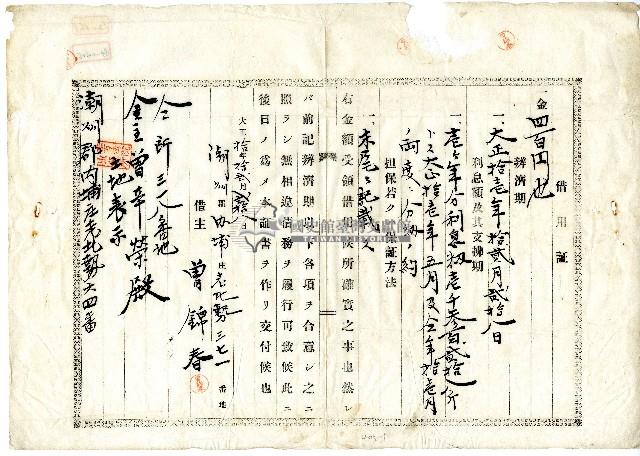 借用証
金四百円也
辨済期
一、大正拾壱年拾貳月貳拾八日
利息額及其支拂期
一、壱ヶ年分利息穀壱千参百貳拾斤
大正拾壱年五月及仝年拾壱月
両度ニ分納ノ約
担保若クハ保証方法
一、末尾ニ記載ス
右金額受領借用候所確實之事也然レ
バ前記辨済期以下各項ヲ合意シ之ニ
照ラシ無相違債務ヲ履行可致候此ニ
後日ノ爲メ本証書ヲ作リ交付候也
大正拾年拾貳月貳拾八日
潮州郡内埔庄老北勢三七一番地
借主 曾錦春
仝所三八番地
金主曾辛榮殿
土地表示
潮州郡内埔庄老北勢六四番
國史館臺灣文獻館